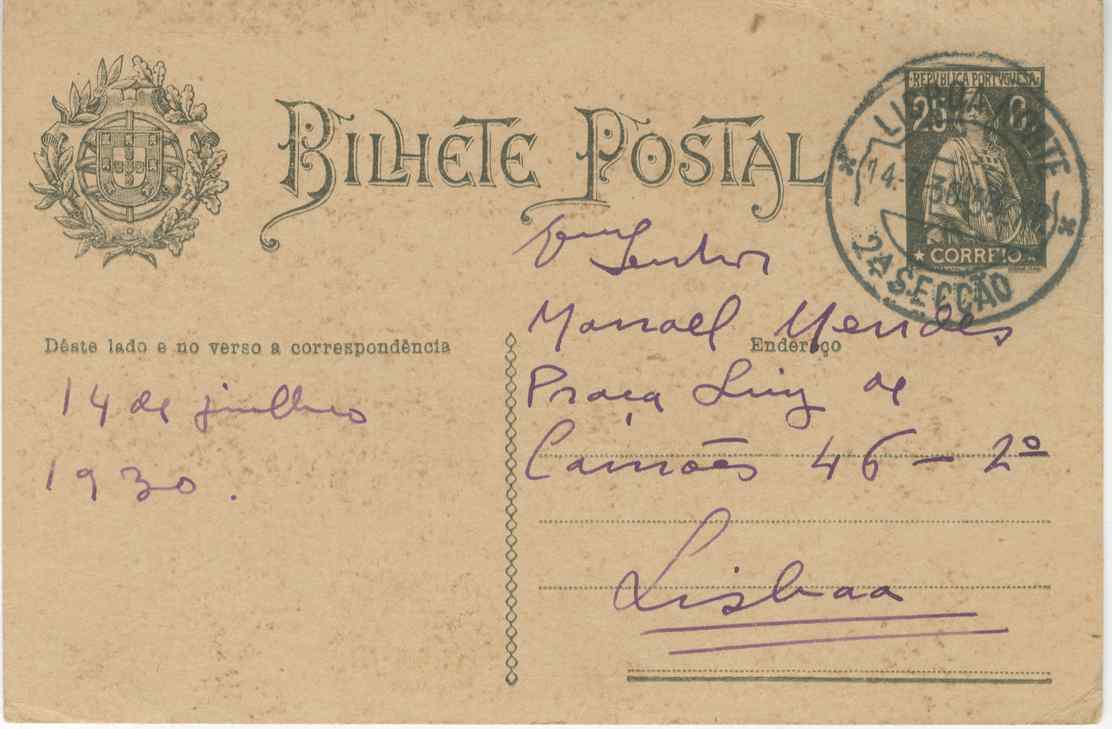 BILHETE POSTAL
REPVBLICA PORTVGVESA
25 C.
CORREIO
LISBOA
14.
30
2A SECÇÃO
Dêste lado e no verso a correspondência
Endereço
14 de julho
1930.
Exmo
Senhor
Manoel Mendes
Praça Luiz de
Camões 46 - 2º
Lisboa